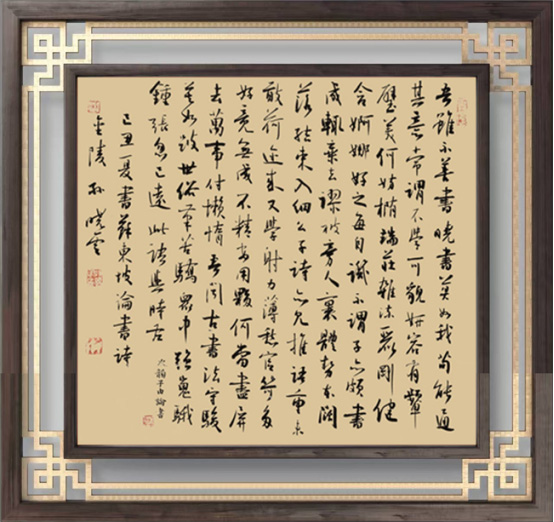 吾雖不善書曉書莫如我苟能通
其意常謂不學可貌妍容有顰
璧美何妨橢端莊雜流麗剛健
含婀娜好之每自譏不謂子亦頗書
成輒棄去謬被旁人裹體勢本闊
落結束入細么子詩亦見推語重未
敢荷迩來又學射力薄愁官笴多
好竟無成不精安用夥何當盡屏
去萬事付懶惰吾聞古書法守駿
莫如跛世俗筆苦驕眾中強嵬騀
鍾張忽已遠此語與時左
次韻子由論書
己丑夏書蘇東坡論書詩
金陵孫曉雲